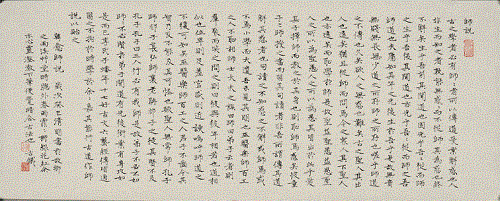 師說
古之學者必有師師者所以傳道受業解惑也人
非生而知之者孰能無惑惑而不從師其為惑也終
不解矣生乎吾前其聞道也固先乎吾吾從而師之
生乎吾後其聞道也亦先乎吾吾從而師之吾
師道也夫庸知其年之先後生於吾乎是故無貴
無賤無長無少道之所存師之所存也嗟乎師道
之不傳也久矣欲人之無惑也難矣古之聖人其出
人也遠矣猶且從師而問焉今之眾人其下聖人
也亦遠矣而恥學於師是故聖益聖愚益愚聖
人之所以為聖愚人之所以為愚其皆出於此乎愛
其子擇師而教之於其身也則恥師焉惑矣彼童
子之師授之書而習其句讀者非吾所謂傳其道
解其惑者也句讀之不知惑之不解或師焉或
不焉小學而大遺吾未見其明也巫醫樂師百工
之人不恥相師士大夫之族曰師曰弟子云者則
群聚而笑之問之則曰彼與彼年相若也道相
似也位卑則足羞官盛則近諛嗚呼師道之
不復可知矣巫醫樂師百工之人君子不齒今其
智乃反不能及其可怪也歟聖人無常師孔子
師郯子萇弘師襄老聃郯子之徒其賢不及
孔子孔子曰三人行則必有我師是故弟子不必不如
師師不必賢於弟子聞道有先後術業有專攻如
是而已李氏子蟠年十七好古文六藝經傳皆通
習之不拘於時學於余余嘉其能行古道作師
說以貽之
韓愈師說 歲次癸巳清明